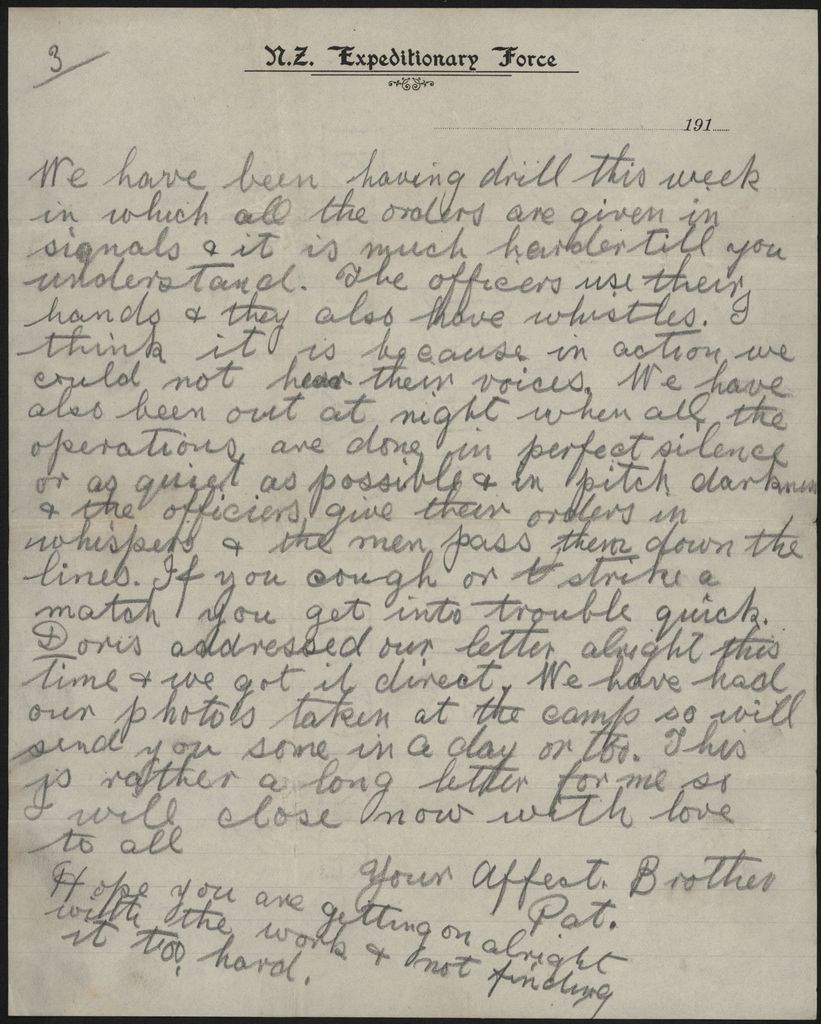 3
N.Z. Expeditionary Force
191
We have been having drill this week
in which all the orders are given in
signals & it is much harder till you
understand. The officers use their
hands & they also have whistles. I
think it is because in action we
could not hear their voices. We have
also been out at night when all the
operations are done in perfect silence
or as quiet as possible & in pitch darkness
& the officiers give their orders in
whispers & the men pass them down the
lines. If you cough or strike a
match you get into trouble quick.
Doris addressed our letter alright this
time & we got it direct. We have had
our photos taken at the camp so will
send you some in a day or too. This
is rather a long letter for me so
I will close now with love
to all
Your Affect. Brother
Pat.
Hope you are getting on alright
with the work & not finding
it too hard.